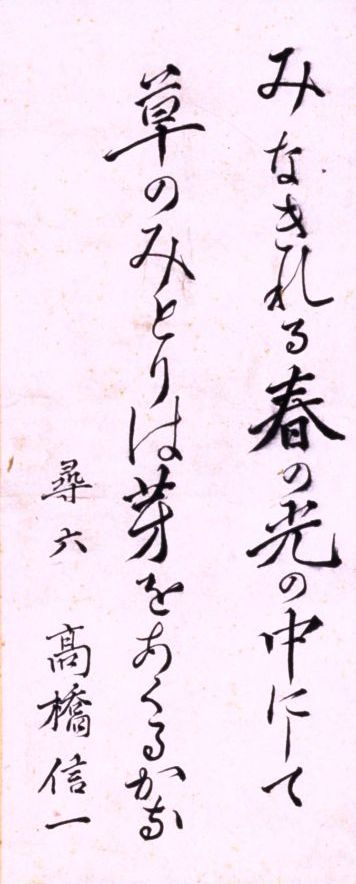 みなきれる春の光の中にして
草のみとりは芽をあくるかな
尋六 高橋信一